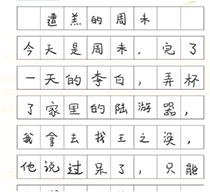 遭羔的周未
今天是周未，完了
一天的李白，弄杯
了家里的陆游器，
我拿去找王之涣，
他说过呆了，只能